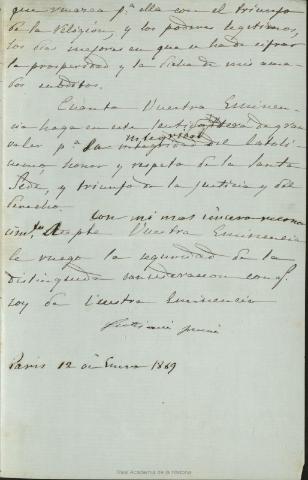 que renazca pª ella con el triunfo
de la religión, y los poderes legitimos,
los dias mejores en que se ha de cifrar
la prosperidad y la dicha de mis ama-
dos subditos.
Cuanto Vuestra Eminen-
cia haga en este sentido será de gran
valer pª la integridad del Catoli-
cismo, honor y respeto de la Santa
Sede, y triunfo de la justicia y del
derecho.
Con mi mas sincero recono-
cimto acepte Vuestra Eminencia
le ruego la seguridad de la
distinguida consideracion con q.
soy de Vuestra Eminencia
Paris 12 de Enero 1869
Real Academia de la Historia